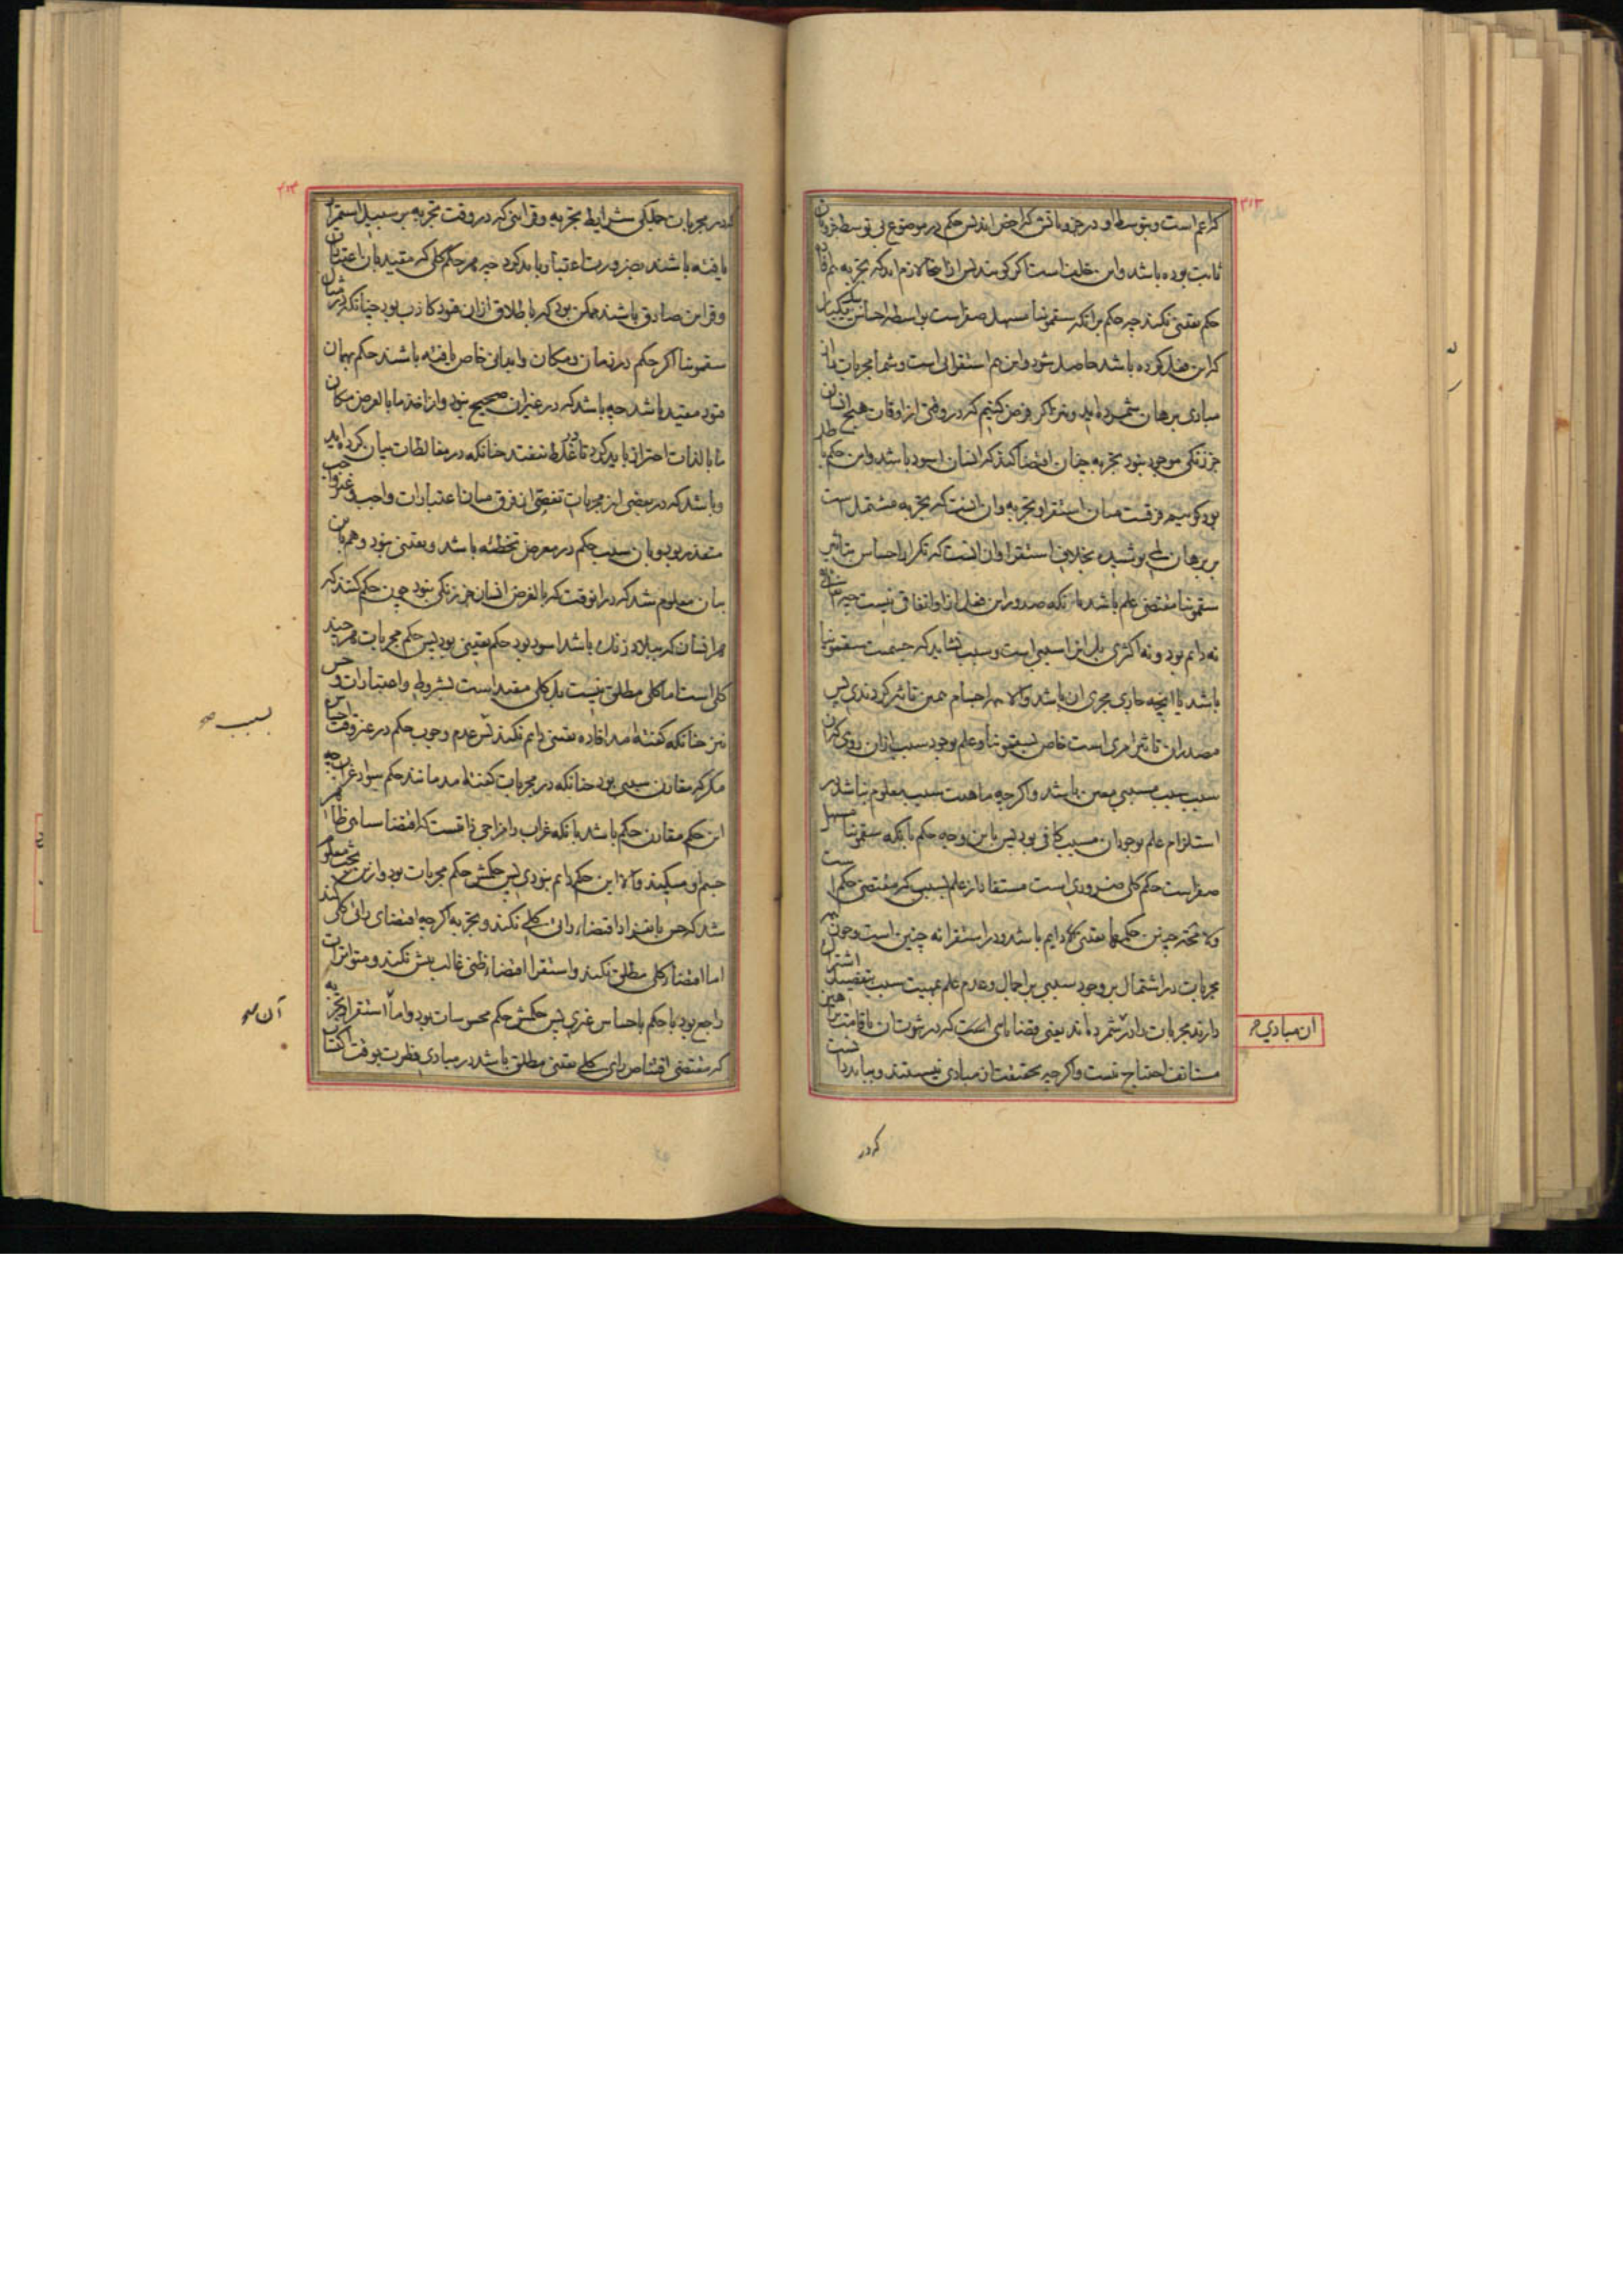 کراعم است وبتوسط او در جزویاتش کراخص اند پس حکم در موضوع بی توسط جزویات
ثابت بوده باشد واین خلفست اکر کویند پس ازاینجا لازم اید که تجربه هم افاده
حکم یقینی نکند چه حکم برانکه سقمونیا مسهل صفراست بواسطه احساس بیکبیک
کراین فعل کرده باشد حاصل شود واین هم استقرائی است وشما مجربات را از
مبادی برهان شمرده اید ونیز اکر فرض کنیم که در وقتی از اوقات هیچ انسان
جز زنکی موجود نبود تجربه چنان اقتضا کند که انسان اسود باشد واین حکم باطل
بود کوییم فرقست میان استقرا وتجربه وان انست که تجربه مشتمل است
بر برهان لمی پوشیده بخلاف استقرا وان انست که تکرار احساس بتاثیر
سقمونیا مقتضی علم باشد بانکه صدور این فعل ازو اتفاقی نیست چه اتفاقی
نه دائم بود ونه اکثری بل انرا سببی است وسبب نشاید که جسمیت سقمونیا
باشد یا انچه جاری مجری ان باشد والا همه اجسام همین تاثیر کردندی پس
مصدر ان تاثیر امری است خاص بسقمونیا وعلم بوجود سبب ازان روی کران
سبب سبب مسببی معین باشد واکرچه ماهیت سبب معلوم نباشد در
استلزام علم بوجود ان مسبب کافی بود پس باین وجه حکم بانکه سقمونیا مسهل
صفراست حکم کلی ضروری است مستفاد از علم بسبب که مقتضی حکم است
ولا محاله چنین حکمها یقینی ودایم باشد ودر استقرا نه چنین است وچون
مجربات در اشتمال بر وجود سببی بر اجمال وعدم علم بمهیت سبب بتفصیل اشتراک
دارند مجربات را در شمرده اند یعنی قضایایی است که در ثبوت ان باقامت براهین
مستانف احتیاج نیست واکرچه بحقیقت از مبادی نیستند وبباید دانست
ان مبادی
که در
که در مجربات جملکی شرایط تجربه وقراینی که در وقت تجربه بر سبیل استمرار
یافته باشند بضرورت اعتبار باید کرد چه هر حکم کلی که مقید بان اعتبارات
وقراین صادق باشند ممکن بود که باطلاق ازان قیود کاذب بود چنانکه در مثال
سقمونیا اکر حکم در زمان ومکان وابدان خاص یافته باشند حکم بهمان
قیود مقید باشد چه باشد که در غیر ان صحیح نبود واز اخذ ما بالعرض مکان
ما بالذات احتراز باید کرد تا در غلط نیفتد چنانکه در مغالطات بیان کرده اید
وباشد که در بعضی از مجربات تفصی از فرق میان اعتبارات واجب وغیر واجب
متعذر بود وبان سبب حکم در معرض تخطئه باشد ویقینی نبود وهم باین
بیان معلوم شد که در انوقت که بالفرض انسان جز زنکی نبود چون حکم کنند که
هر انسان که ببلاد زنک باشد اسود بود حکم یقینی بود پس حکم مجربات هرچند
کلی است اما کلی مطلق نیست بل کلی مقید است بشروط واعتبارات وحس
نیز چنانکه کفته امد افاده یقینی دائم نکند پس عدم وجوب حکم در غیر وقت احساس
مکر که مقارن سببی بود چنانکه در مجربات کفته امد مانند حکم سواد غراب چه
این حکم مقارن حکم باشد بانکه غراب را مزاجی ذاتیست که اقتضا سیاهی ظاهر
جسم او میکند والا این حکم دائم نبودی پس حکمش حکم مجربات بود وازین بحث معلوم
شد که حس بانفراد اقتضاء رائی کلی نکند وتجربه اکرچه اقتضای رائی کلی کند
اما اقتضاء کلی مطلق نکند واستقرا اقتضاء ظنی غالب بیش نکند ومتواترات
راجع بود با حکم باحساس غیری پس حکمش حکم محسوسات بود واما استقرا وتجربه
که مقتضی اقتناص رای کلی یقینی مطلق باشد در مبادی فطرت بوقت اکتساب
بسبب صح
آن صح